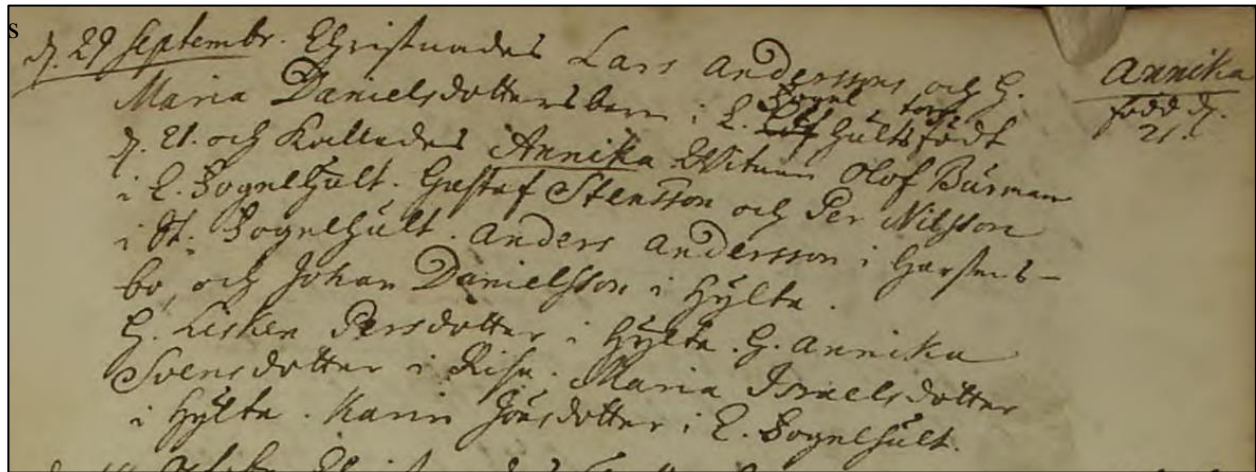 s
d. 29 Septembr. Christnades Lars Anderssons och H.
Maria Danielsdotters barn i L. Fogel torp
Hults födt
d. 21. och Kallades Annika Witnen Olof Burman
i L. Fogelhult. Gustaf Stensson och Per Nilsson
i St. Fogelhult. Anders Andersson i
bo, och Johan Danielsson i Hylta.
H. Lisken Persdotter i Hylta. H. Annika
Svensdotter i Risa. Maria Israelsdotter
i Hylta. Karin Jönsdotter i L. Fogelhult.
Annika
född d.
21.